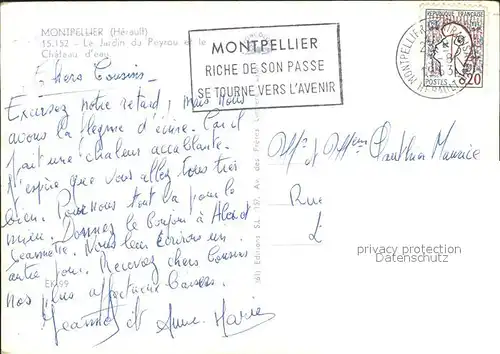 MONTPELLIER (Hérault)
15.152 - Le Jardin du Peyrou et le
Château d'eau
Chers Cousins
Excusez notre retard, mais nous
avons la flegme d'écrire. Car il
fait une chaleur accablante.
J'espère que vous allez tous très
bien. Pour nous tout va pour le
mieu. Donnez le bonjour à Alex et
Jeannette. Nous leur écrirons un
autre jour. Recevez chers Cousins
nos plus affectueux baisers.
Jeannot et Anne-Marie
EK 99
MONTPELLIER
RICHE DE SON PASSE
SE TOURNE VERS L'AVENIR
REPUBLIQUE FRANÇAISE
POSTES
0,20
MONTPELLIER
HERAULT
1963
Mr et Mme Maurice
Rue
privacy protection
Datenschutz